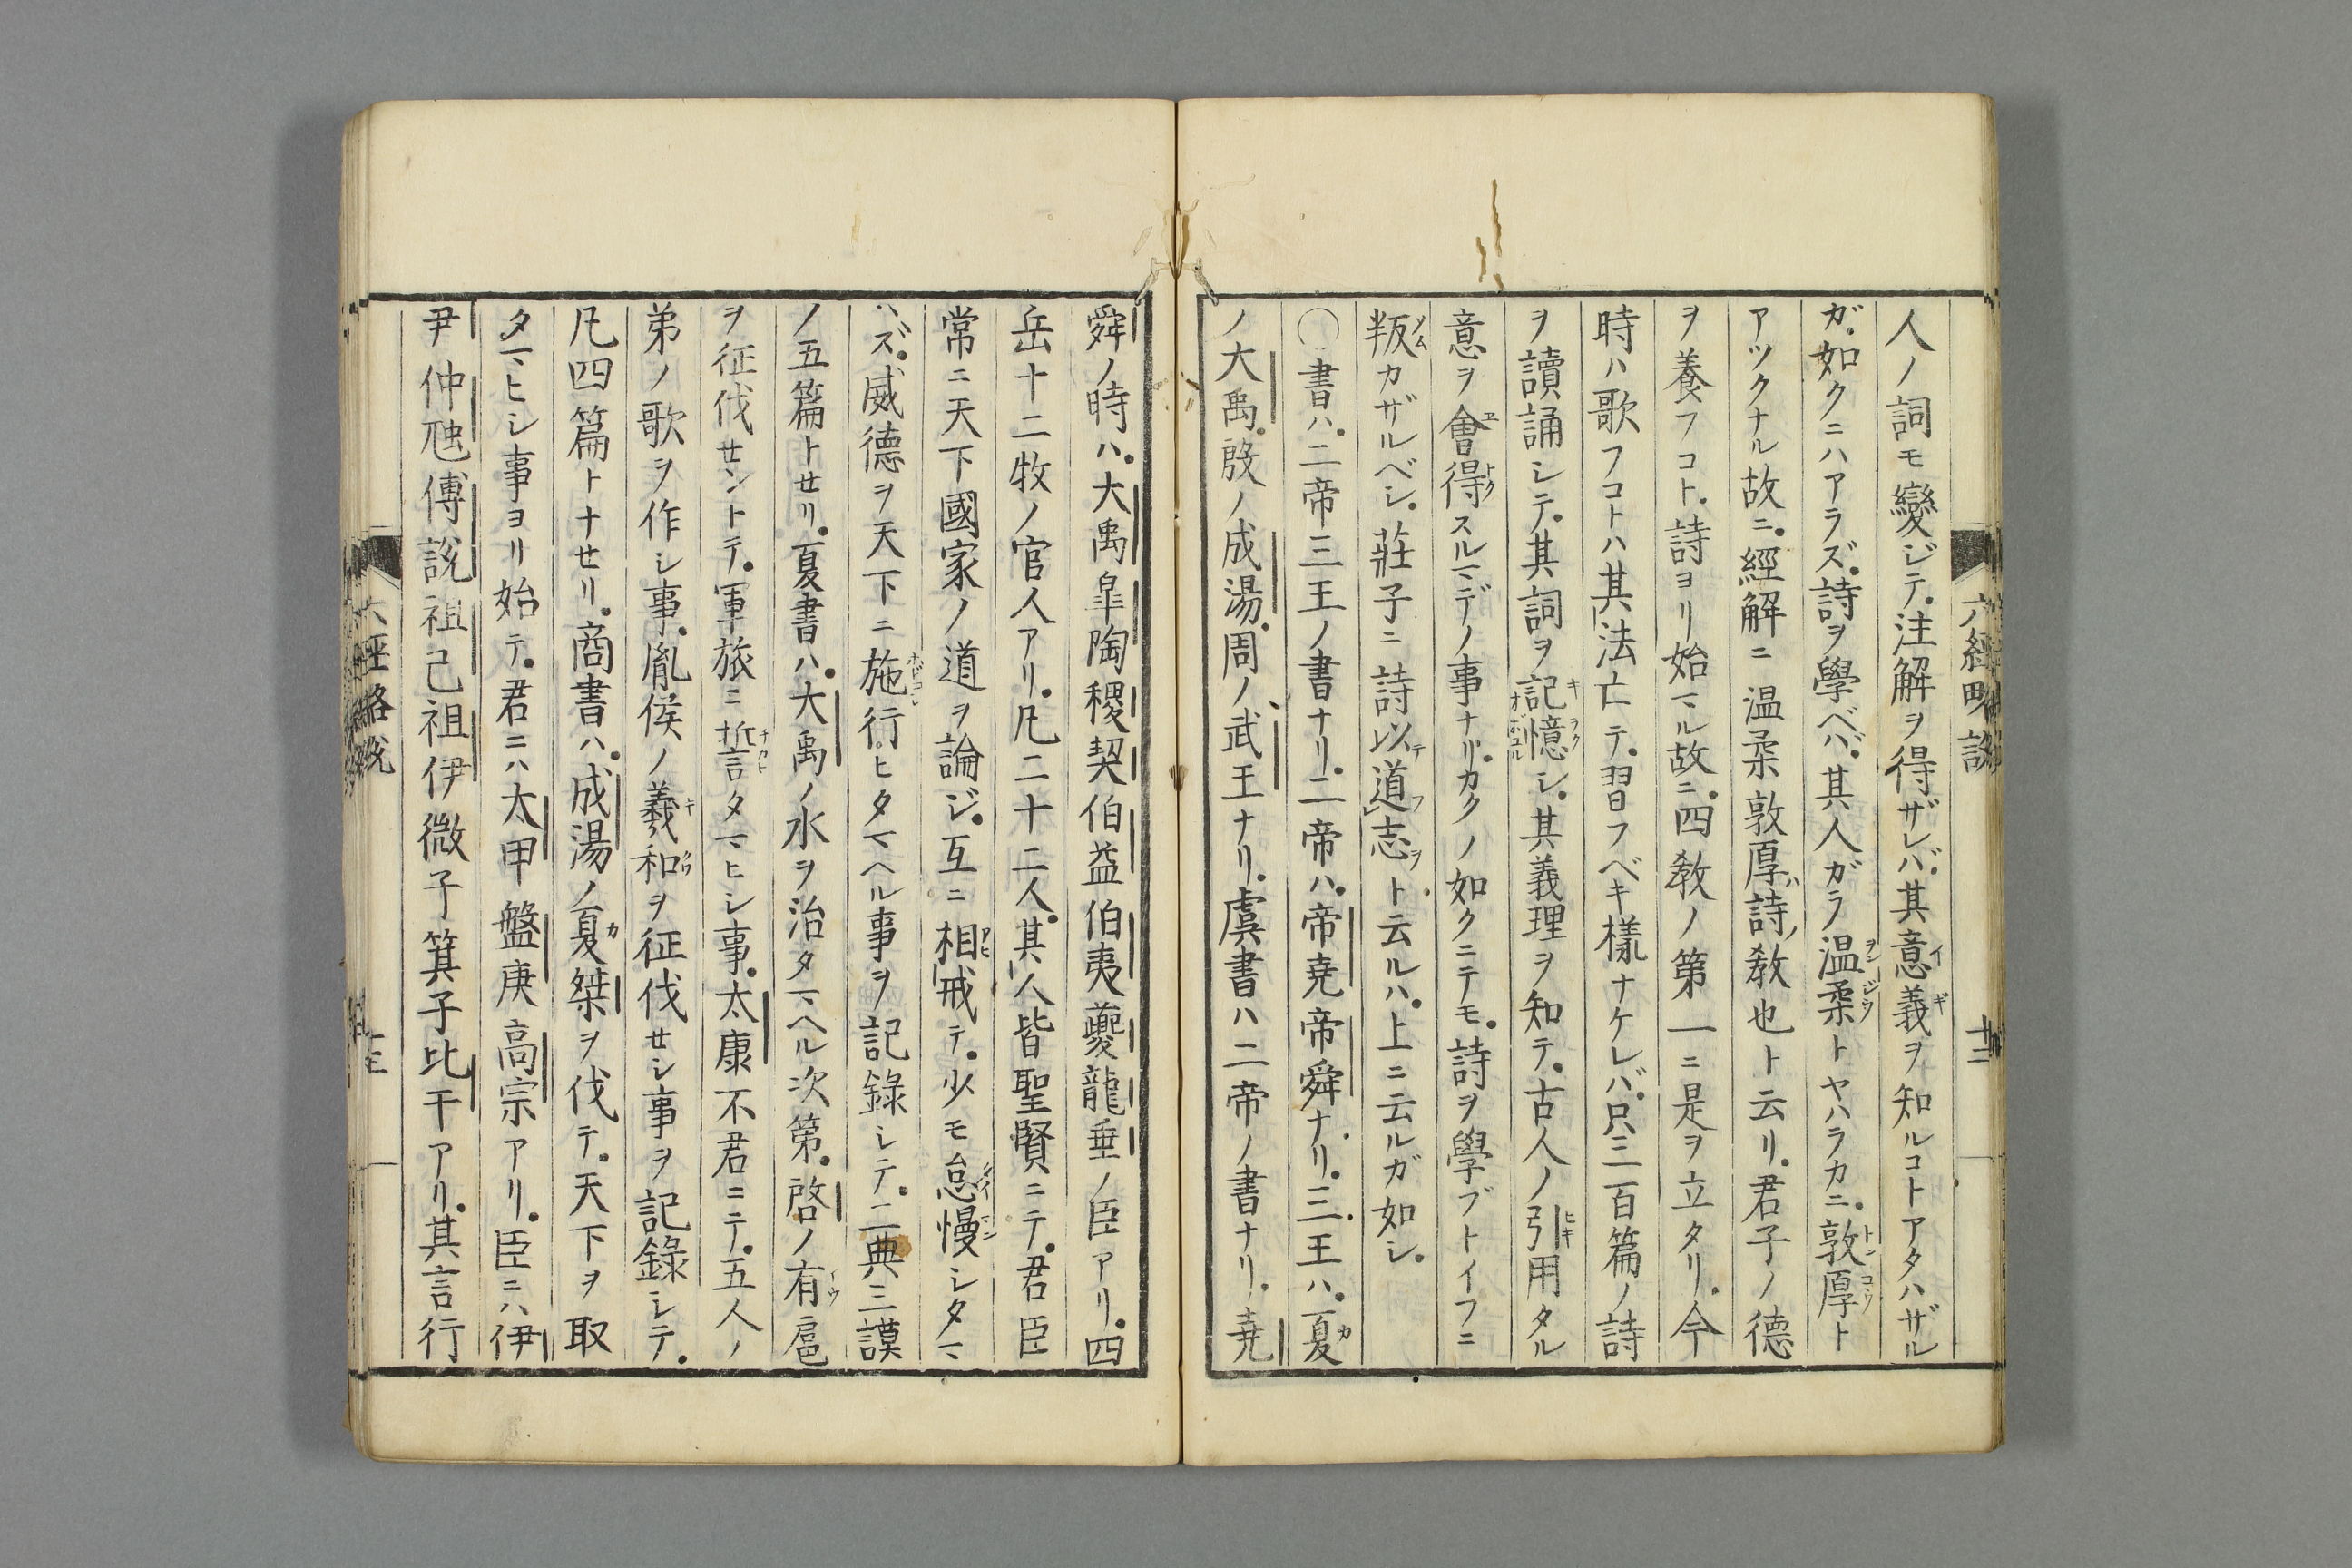 人ノ詞モ變ジテ。注解ヲ得ザレバ。其意義ヲ知ルコトアタハザル
ガ。如クニハアラズ。詩ヲ學ベバ。其人ガラ温柔トヤハラカニ。敦厚ト
アツクナル故ニ。經解ニ温柔敦厚。詩ノ教也ト云リ。君子ノ德
ヲ養フコト。詩ヨリ始マル故ニ。四教ノ第一ニ是ヲ立タリ。今
時ハ歌フコトハ其法亡テ。習フベキ樣ナケレバ。只三百篇ノ詩
ヲ讀誦シテ。其詞ヲ記憶シ。其義理ヲ知テ。古人ノ引用タル
意ヲ會得スルマデノ事ナリ。カクノ如クニテモ。詩ヲ學ブトイフニ
叛カザルベシ。莊子ニ詩以道志ト云ルハ。上ニ云ルガ如シ。
〇書ハ。二帝三王ノ書ナリ。二帝ハ。帝堯帝舜ナリ。三王ハ。夏
ノ大禹。殷ノ成湯。周ノ武王ナリ。虞書ハ二帝ノ書ナリ。堯
六經略說
十二
舜ノ時ハ。大禹皐陶稷契伯益伯夷夔龍垂ノ臣アリ。四
岳十二牧ノ官人アリ。凡二十二人。其人皆聖賢ニテ。君臣
常ニ天下國家ノ道ヲ論ジ。互ニ相戒テ。少モ怠慢シタマ
ハズ。威德ヲ天下ニ施行ヒタマヘル事ヲ記錄シテ。二典三謨
ノ五篇トセリ。夏書ハ。大禹ノ水ヲ治タマヘル次第。啓ノ有扈
ヲ征伐セントテ。軍旅ニ誓タマヒシ事。太康不君ニテ。五人ノ
弟ノ歌ヲ作シ事。胤侯ノ羲和ヲ征伐セシ事ヲ記錄シテ。
凡四篇トナセリ。商書ハ。成湯ノ夏桀ヲ伐テ。天下ヲ取
タマヒシ事ヨリ始テ。君ニハ太甲盤庚高宗アリ。臣ニハ伊
尹仲虺傅說祖己祖伊微子箕子比干アリ。其言行
六經略說
十三